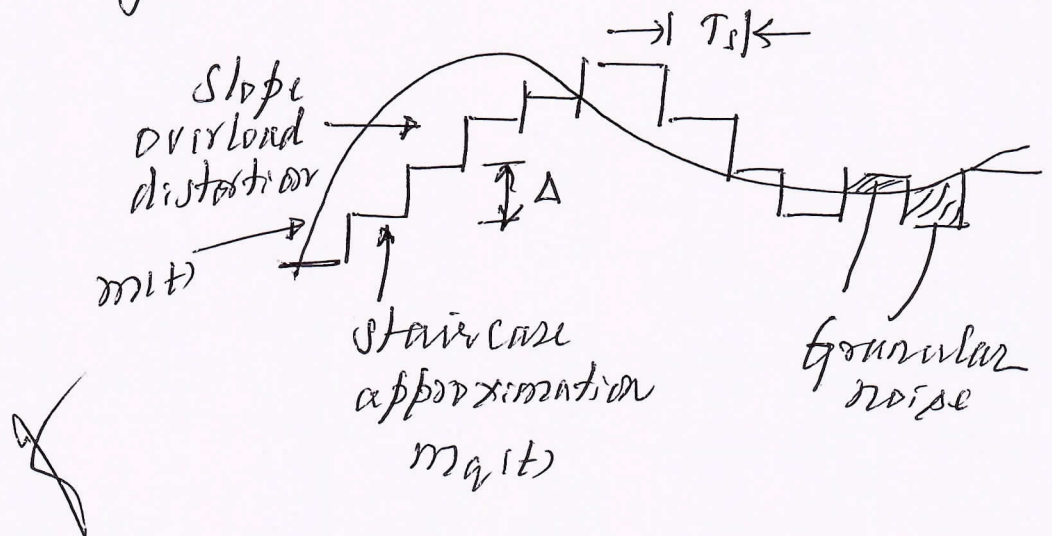 Ts
Slope
overload
distortion
Δ
m(t)
staircase
approximation
mq(t)
Granular
noise